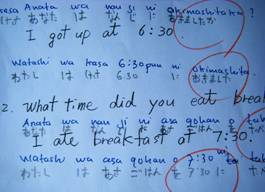 kesa Anata wa nan ji ni okimashitaka ?
けさ あなた は なん じ に おきましたか
I got up at 6:30.
Watashi wa kesa 6:30pun ni okimashita.
わたし は けさ 6:30 に おきました
2. What time did you eat break
Anata wa nan ji ni asa gohan o ta
あなた は なん じ に あさ ごはん
I ate breakfast at 7:30.
Watashi wa asa gohan o 7:30 ni ta
わたし は あさ ごはん を 7:30 に